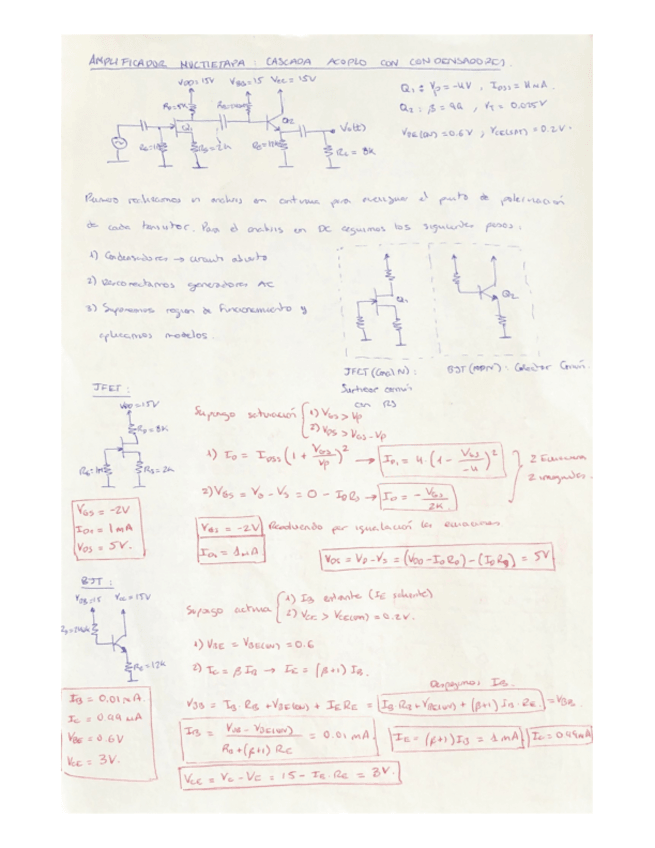 AMPLIFICADOR MULTIETAPA: CASCADA ACOPLO CON CONDENSADORES.
VDD=15V VBB=15 VCC=15V
Q1: Vp=-4V, IDSS=4mA.
Q2: β=99, VT=0.025V
VBE(ON)=0.6V, VCE(SAT)=0.2V.
Q1
Q2
Vo(t)
RS=2k
RL=8k
Primero realizamos un analisis en continua para averiguar el punto de polarización
de cada transistor. Para el analisis en DC seguimos los siguientes pasos:
1) Condensadores → circuito abierto
2) Desconectamos generadores AC
3) Suponemos region de funcionamiento y
aplicamos modelos.
Q1
Q2
JFET (Canal N):
Surtidor común
con RS
BJT (NPN): Colector Común.
JFET:
VDD=15V
RD=8k
RS=2k
VGS=-2V
ID1=1mA
VDS=5V.
Supongo saturación
1) VGS>Vp
2) VDS>VGS-Vp
1) ID = IDSS(1+VGS/Vp)² → ID1=4·(1-VGS/-4)²
2 Ecuaciones
2 incognitas.
2) VGS=VG-VS=0-IDRS → ID=-VGS/2k.
VGS=-2V Resolviendo por igualación las ecuaciones
ID1=1mA
VDS=VD-VS=(VDD-IDRD)-(IDRS)=5V
BJT:
VBB=15 VCC=15V
RE=12k
IB=0.01mA.
IC=0.99mA
VBE=0.6V
VCE=3V.
Supongo activa
1) IB entrante (IE saliente)
2) VCE>VCE(SAT)=0.2V.
1) VBE=VBE(ON)=0.6
2) IC=βIB → IE=(β+1)IB.
Despejamos IB.
VBB=IB·RB+VBE(ON)+IERE=IB·RB+VBE(ON)+(β+1)IB·RE=VBB.
IB=VBB-VBE(ON)/RB+(β+1)RE=0.01mA.
IE=(β+1)IB=1mA IC=0.99mA
VCE=VC-VE=15-IE·RE=3V.